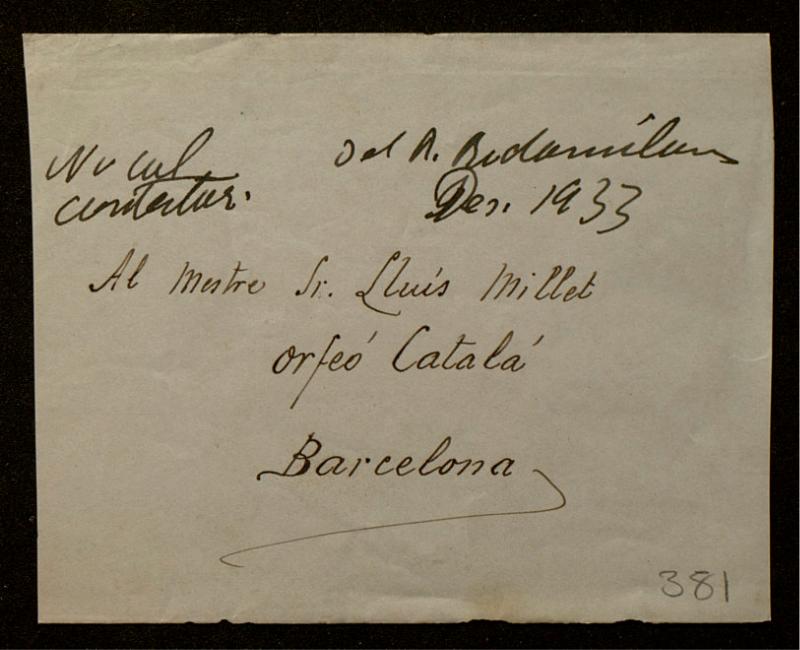 No cal
contestar.
Del R. Vidamilans
Des. 1933
Al Mestre Sr. Lluís Millet
Orfeó Catalá
Barcelona
381